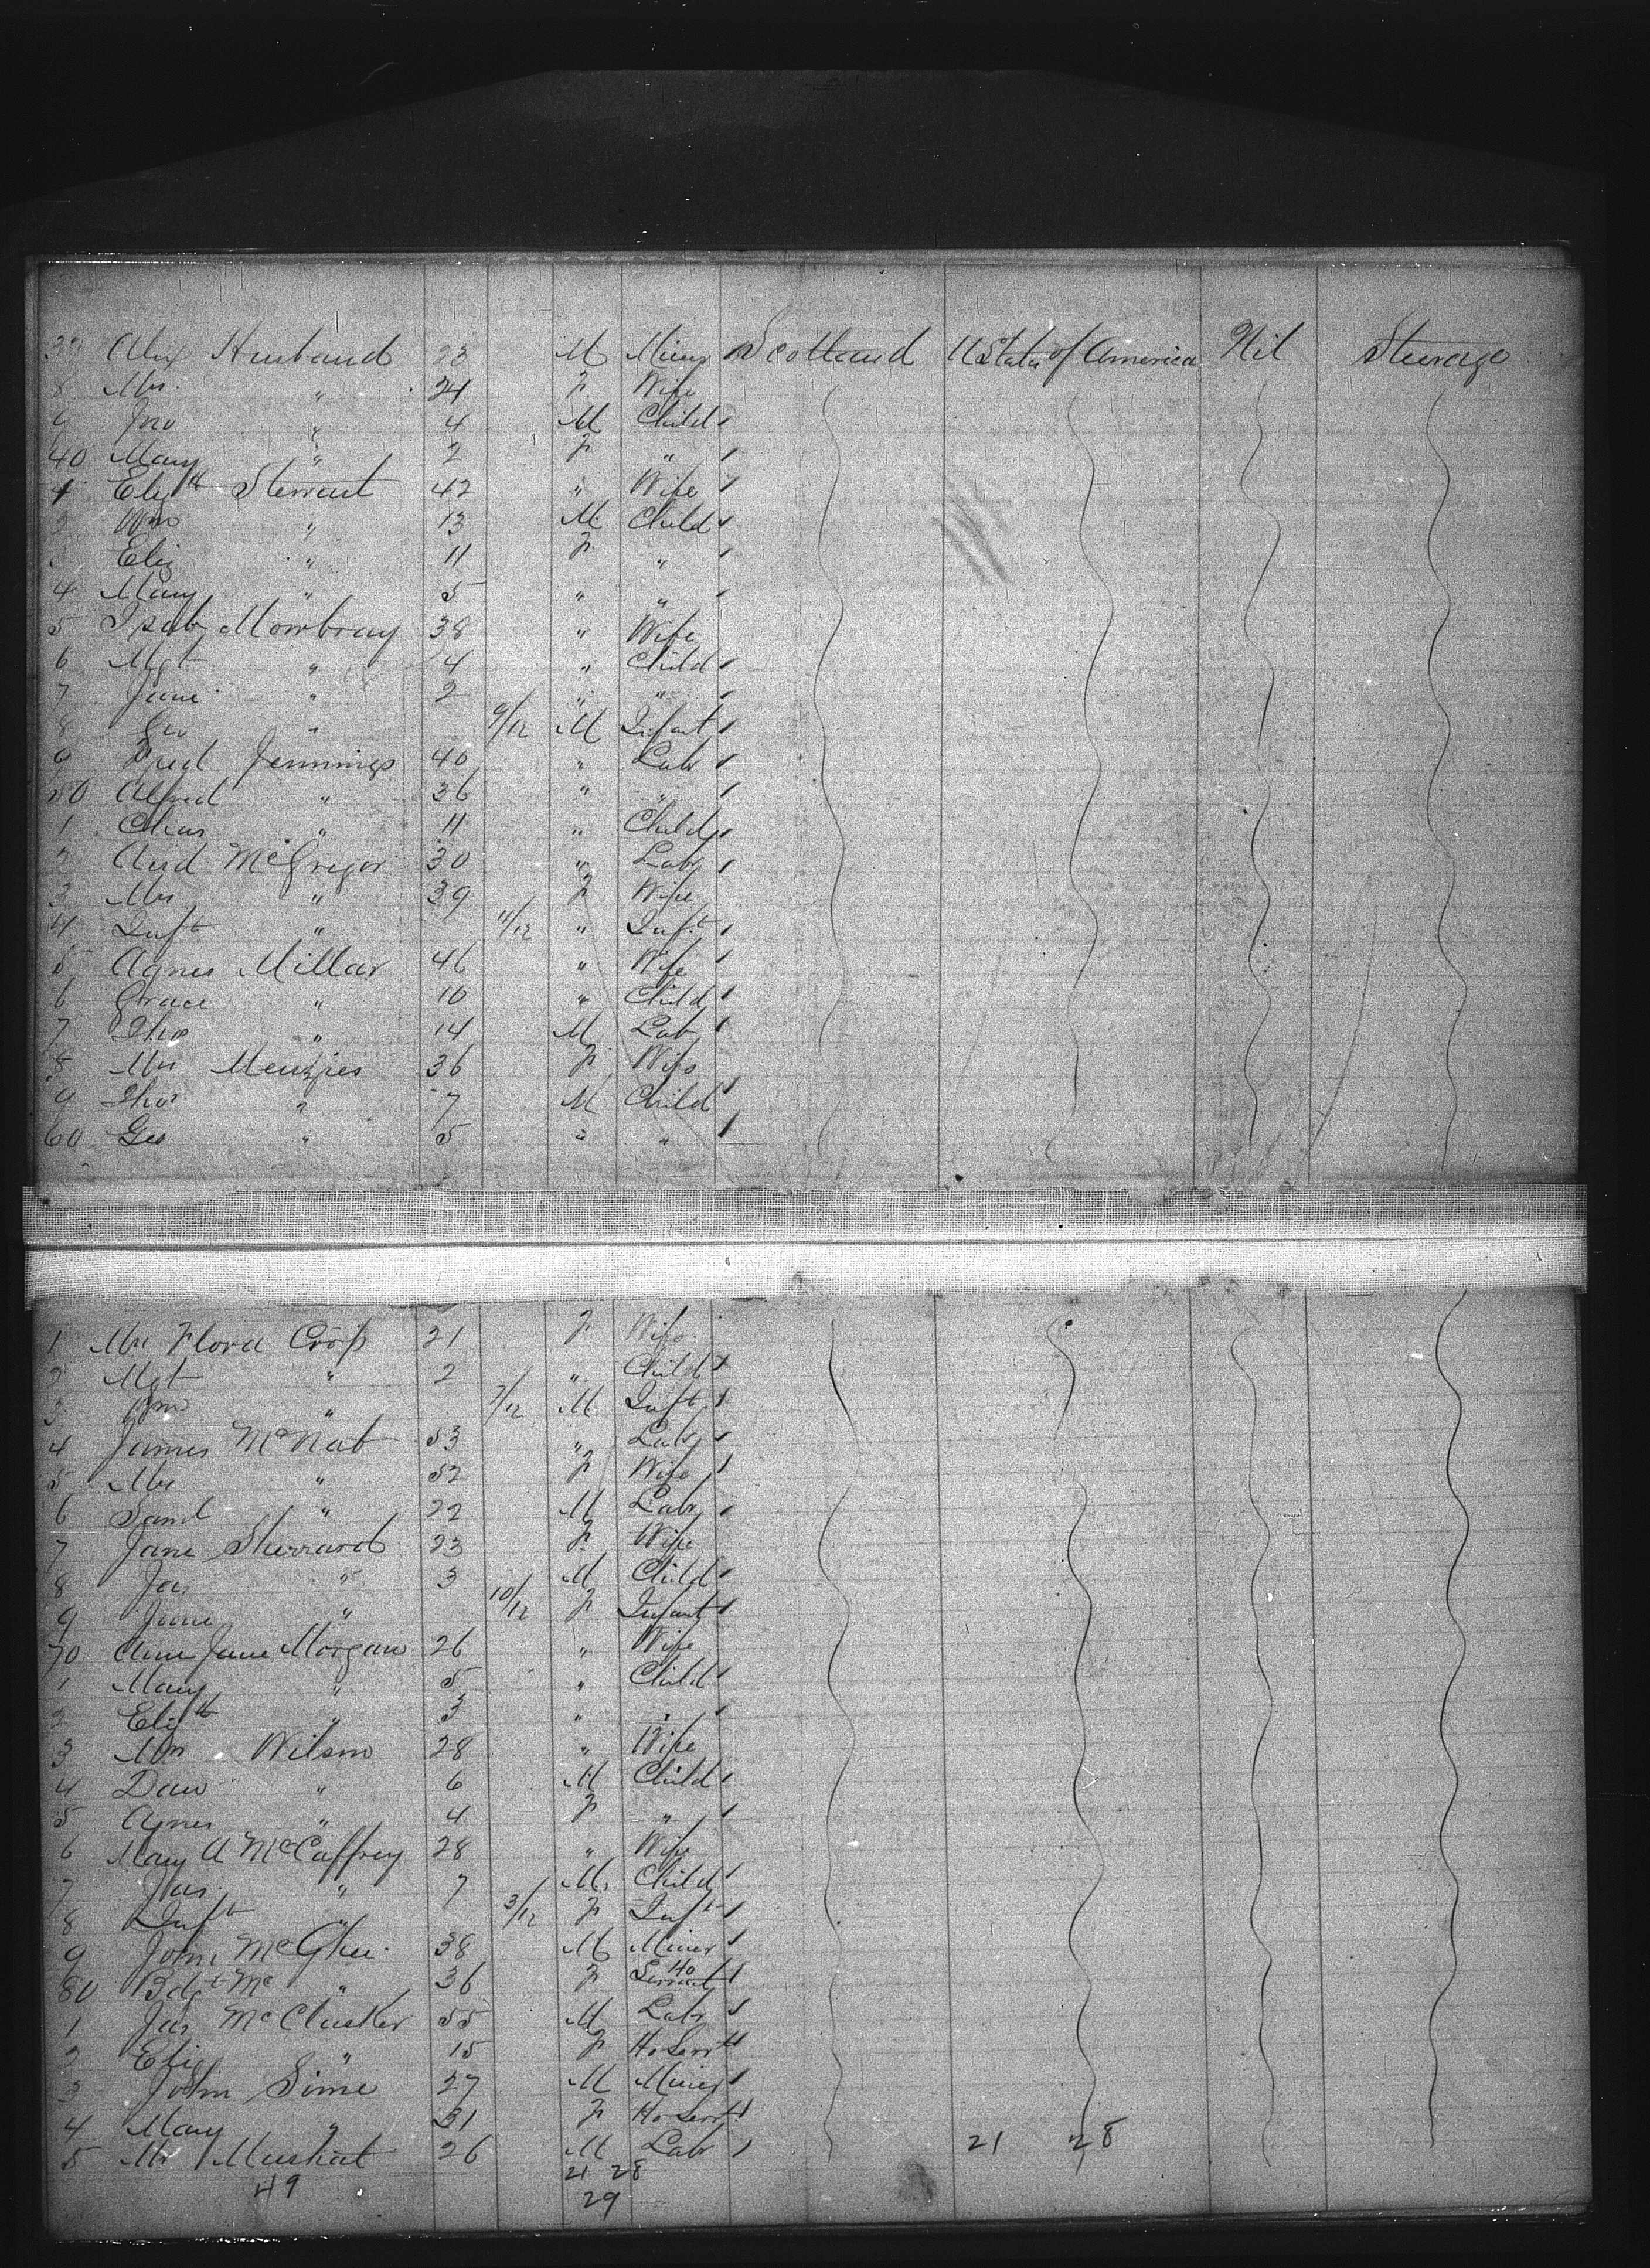 37 Alex Husband 23 M Miner Scotland U States of America Nil Steerage
8 Mrs " 24 F Wife
9 Jno " 4 M Child
40 Mary " 2 F "
1 Elizth Stewart 42 " Wife
2 Wm " 13 M Child
Eliz " 11 F "
4 Mary " 5 " "
5 Isab Mowbray 38 " Wife
6 Mgt " 4 " Child
7 Jane " 2 " "
8 " 9/12 M Infant
9 Fred Jennings 40 " Labr
50 Alfred " 36 " "
1 Chas " 11 " Child
2 And McGregor 30 " Labr
3 Mrs " 39 F Wife
4 Inft " 11/12 " Inft
5 Agnes Millar 46 " Wife
6 Grace " 10 " Child
7 Thos " 14 M Lab
8 Mrs Menzies 36 F Wife
9 Thos " 7 M Child
60 Geo " 5 " "
1 Mrs Flora Crop 21 F Wife
2 Mgt " 2 " Child
3 Wm " 7/12 M Inft
4 James McNab 53 " Labr
5 Mrs " 52 F Wife
6 Saml " 22 M Labr
7 Jane Sherrard 23 F Wife
8 Jas " 3 M Child
9 Jane " 10/12 F Infant
70 Ann Jane Morgan 26 " Wife
1 Mary " 5 " Child
2 Elizth " 3 " "
3 Mrs Wilson 28 " Wife
4 Dav " 6 M Child
5 Agnes " 4 F "
6 Mary A McCaffrey 28 " Wife
7 Jas " 7 M Child
8 Inft " 3/12 F Inft
9 John McGhee 38 M Miner
80 Bdgt Mc " 36 F Ho Servant
1 Jas McClusker 55 M Labr
2 Eliz " 15 F Ho Servt
3 John Sime 27 M Miner
4 Mary " 31 F Ho Servt
5 Mr Mushat 26 M Labr 21 28
49 21 28
29